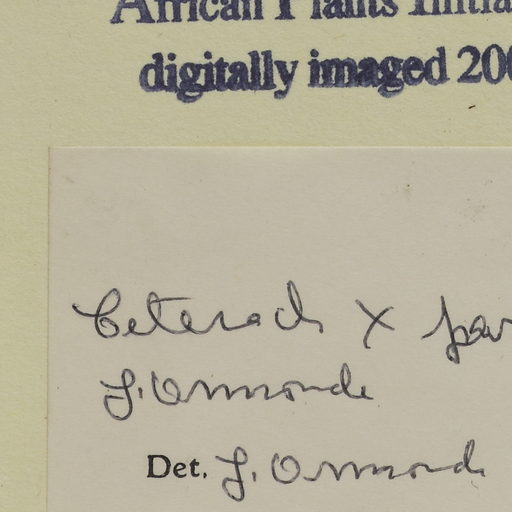 African Plants Initia
digitally imaged 200
Ceterach x par
J. Ormonde
Det. J. Ormonde